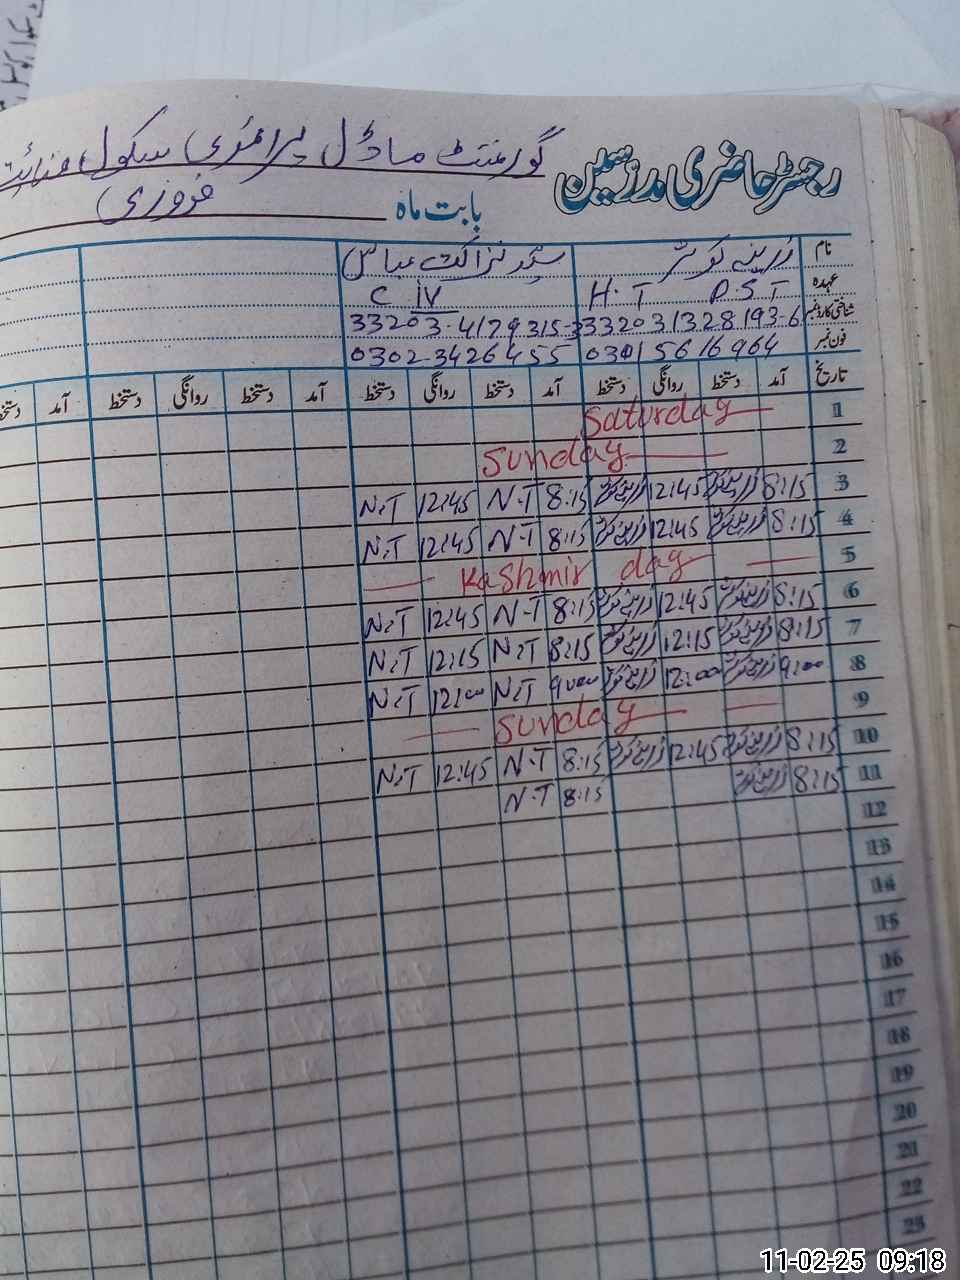 رجسٹر حاضری مدرسین گورنمنٹ ماڈل پرائمری سکول
بابت ماہ فروری
نام زرینہ کوثر سید نزاکت عباس
عہدہ P.S.T H.T C IV
شناختی کارڈ نمبر 33203 1328193-6 33203-4179315-3
فون نمبر 0301 5616964 0302-3426455
تاریخ آمد دستخط روانگی دستخط آمد دستخط روانگی دستخط آمد دستخط روانگی دستخط آمد دستخط
1 Saturday
2 Sunday
3 8:15 زرینہ کوثر 12:45 زرینہ کوثر 8:15 N.T 12:45 N.T
4 8:15 زرینہ کوثر 12:45 زرینہ کوثر 8:15 N.T 12:45 N.T
5 Kashmir day
6 8:15 زرینہ کوثر 12:45 زرینہ کوثر 8:15 N.T 12:45 N.T
7 8:15 زرینہ کوثر 12:15 زرینہ کوثر 8:15 N.T 12:15 N.T
8 9:00 زرینہ کوثر 12:00 زرینہ کوثر 9:00 N.T 12:00 N.T
9 Sunday
10 8:15 زرینہ کوثر 12:45 زرینہ کوثر 8:15 N.T 12:45 N.T
11 8:15 زرینہ کوثر 8:15 N.T
12
13
14
15
16
17
18
19
20
21
22
23
11-02-25 09:18